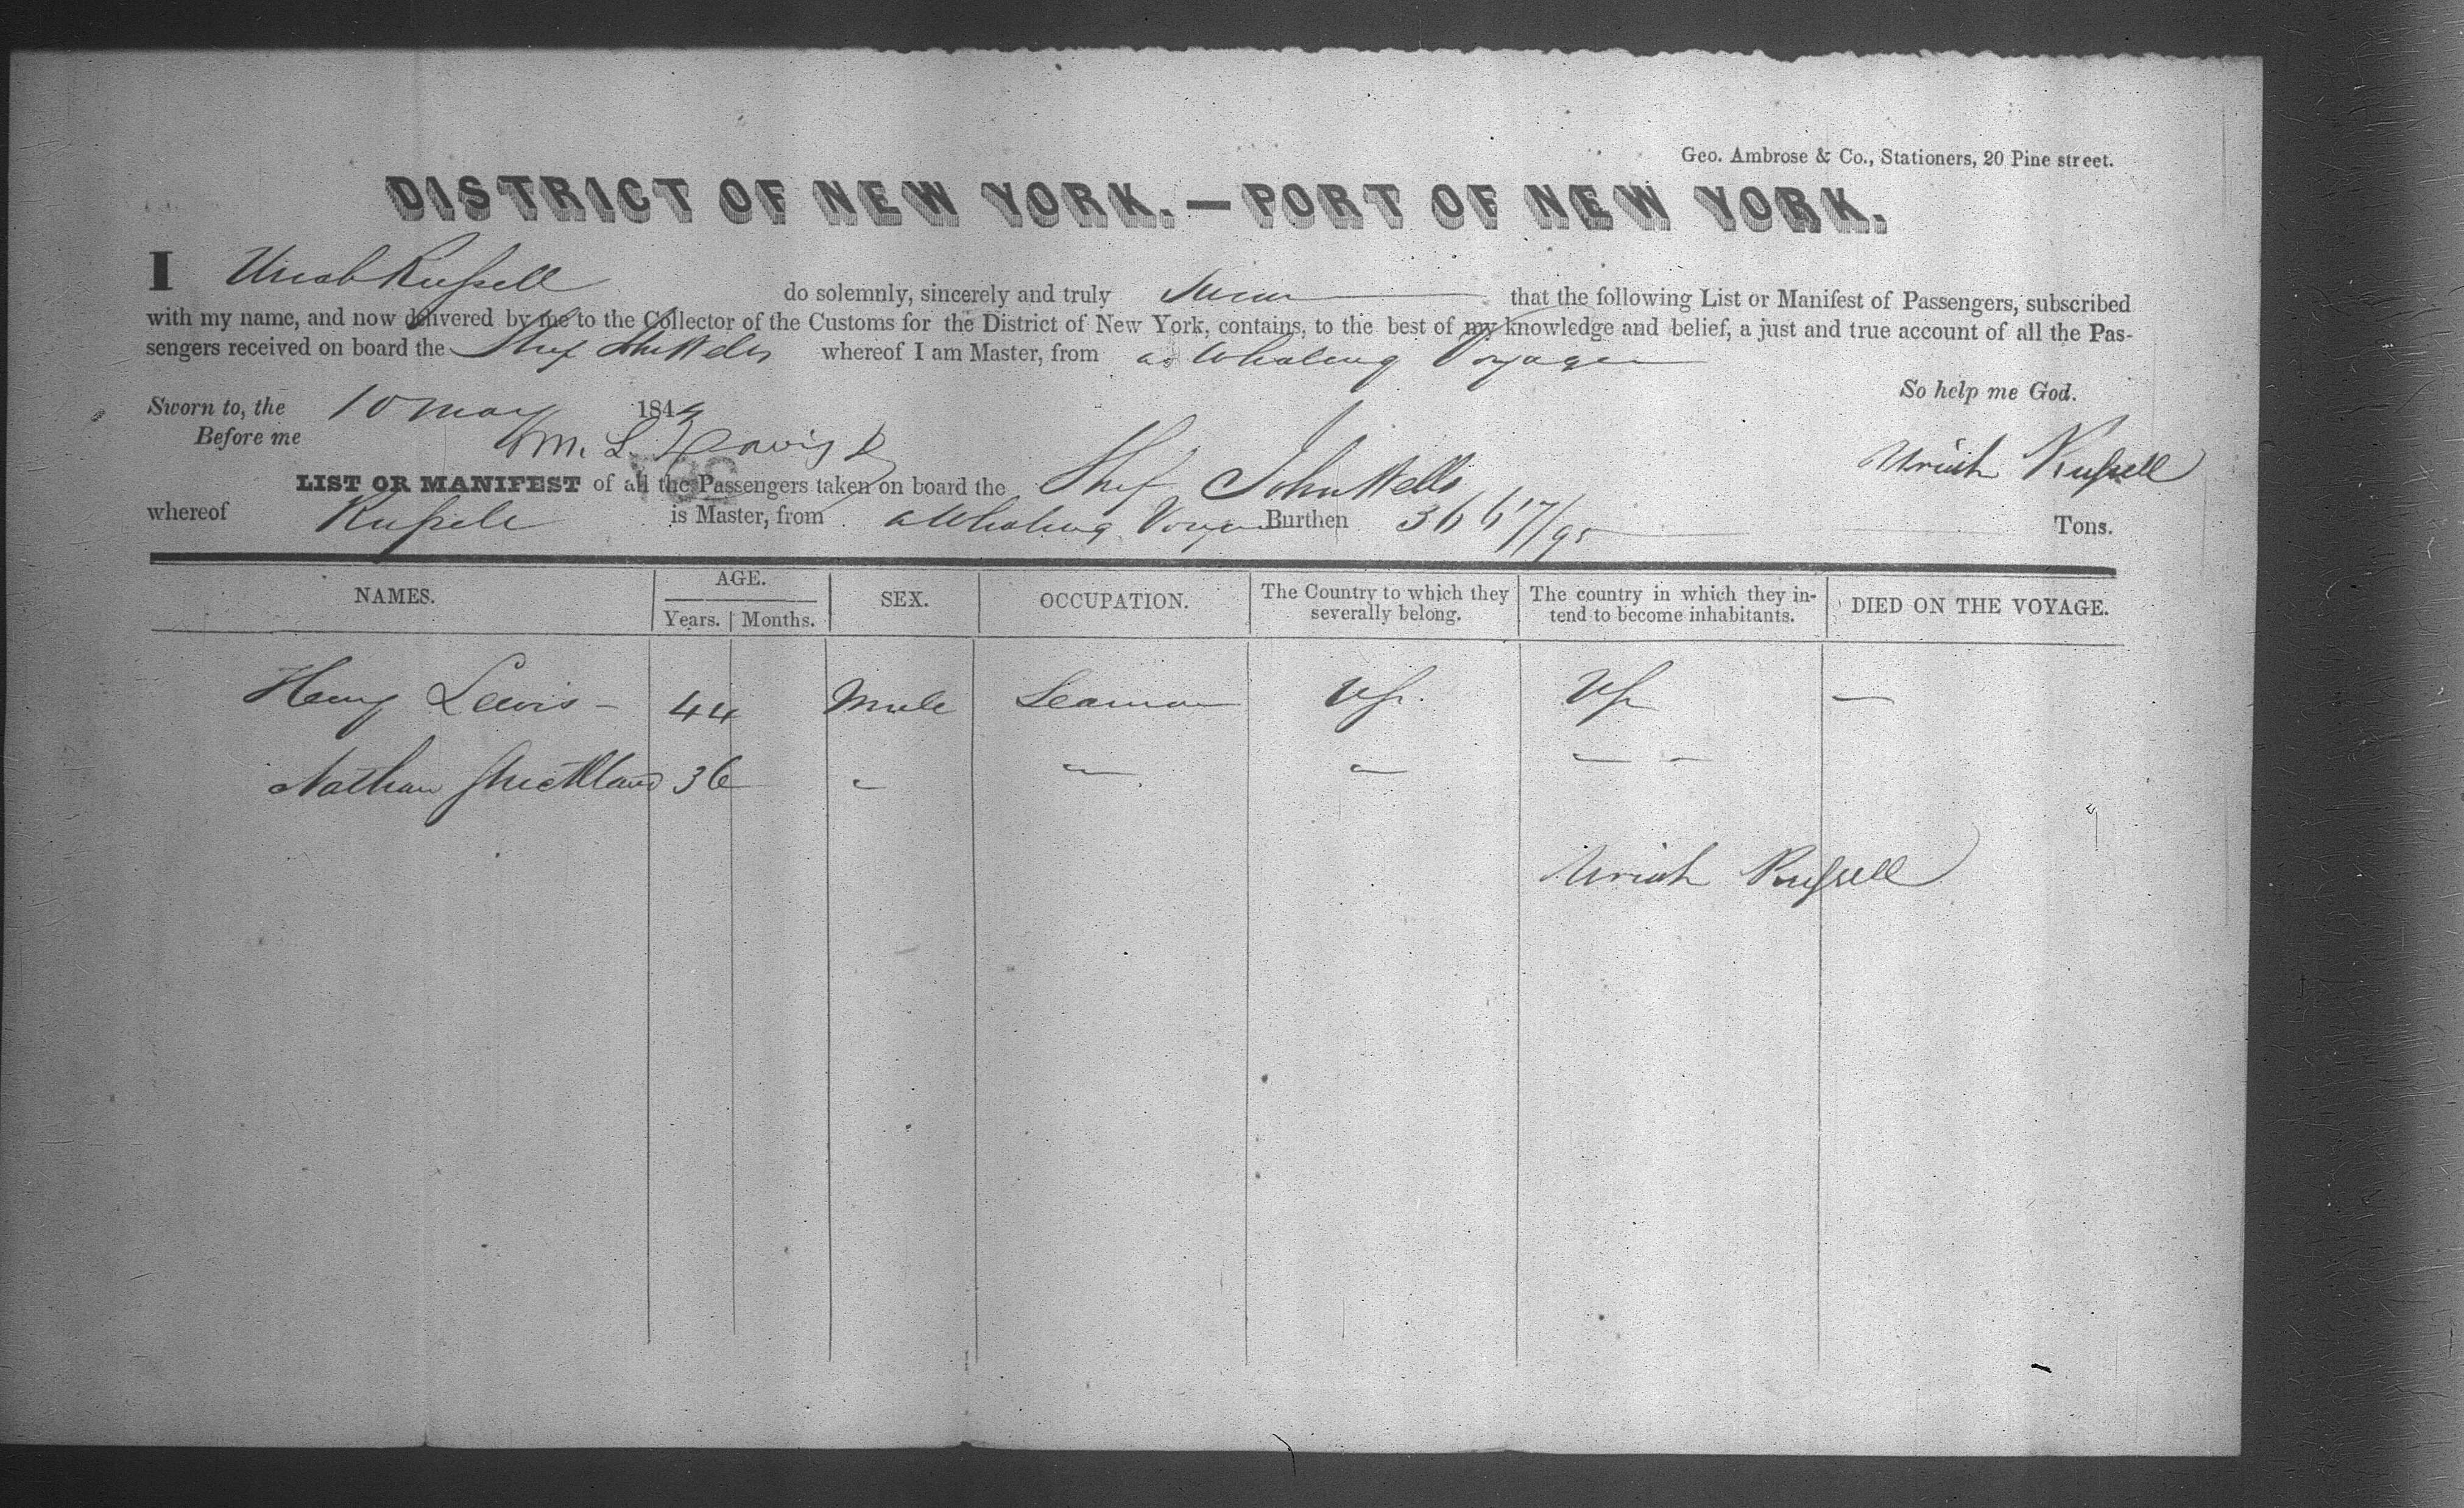 Geo. Ambrose & Co., Stationers, 20 Pine street.
DISTRICT OF NEW YORK.—PORT OF NEW YORK.
I Uriah Russell do solemnly, sincerely and truly swear that the following List or Manifest of Passengers, subscribed
with my name, and now delivered by me to the Collector of the Customs for the District of New York, contains, to the best of my knowledge and belief, a just and true account of all the Pas-
sengers received on board the Ship John Wells whereof I am Master, from a Whaling Voyage
So help me God.
Sworn to, the 10 May 184
Before me M. L. Davis
Uriah Russell
LIST OR MANIFEST of all the Passengers taken on board the Ship John Wells
whereof Russell is Master, from a Whaling Voyage Burthen 366 17/95 Tons.
NAMES. AGE. Years. Months. SEX. OCCUPATION. The Country to which they severally belong. The country in which they in-tend to become inhabitants. DIED ON THE VOYAGE.
Henry Lewis - 44 Male Seaman US. US —
Nathan Strickland 36 " " " " "
Uriah Russell